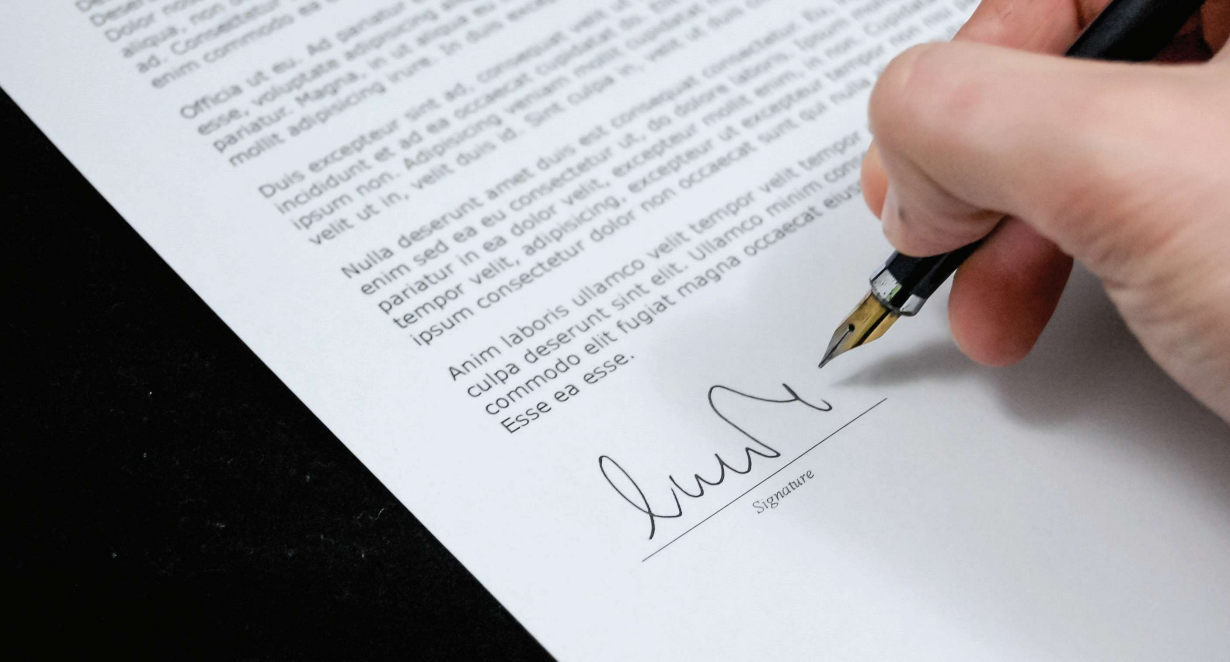 Dolor
aliqua, non
ad. Consectetur
enim commodo ea
Officia ut eu. Ad pariatur
esse, voluptate adipisicing
pariatur. Magna, in ut aliqua eu
mollit adipisicing irure. In duis
Duis excepteur sint ad, consequat velit ut
incididunt et ad ea occaecat cupidatat
ipsum non. Adipisicing veniam mollit cupidatat
velit ut in, velit duis id. Sint culpa in, velit ut duis
Nulla deserunt amet duis est consequat consectetur.
enim sed ea eu consectetur ut, do dolore laboris. Ipsum
pariatur in ea dolor velit, excepteur mollit enim, in non. Cupidatat
tempor velit, adipisicing, excepteur ut excepteur tempor non nisi
ipsum consectetur dolor non occaecat sunt qui nulla
Anim laboris ullamco velit tempor velit tempor
culpa deserunt sint elit. Ullamco minim
commodo elit fugiat magna occaecat
Esse ea esse.
Signature